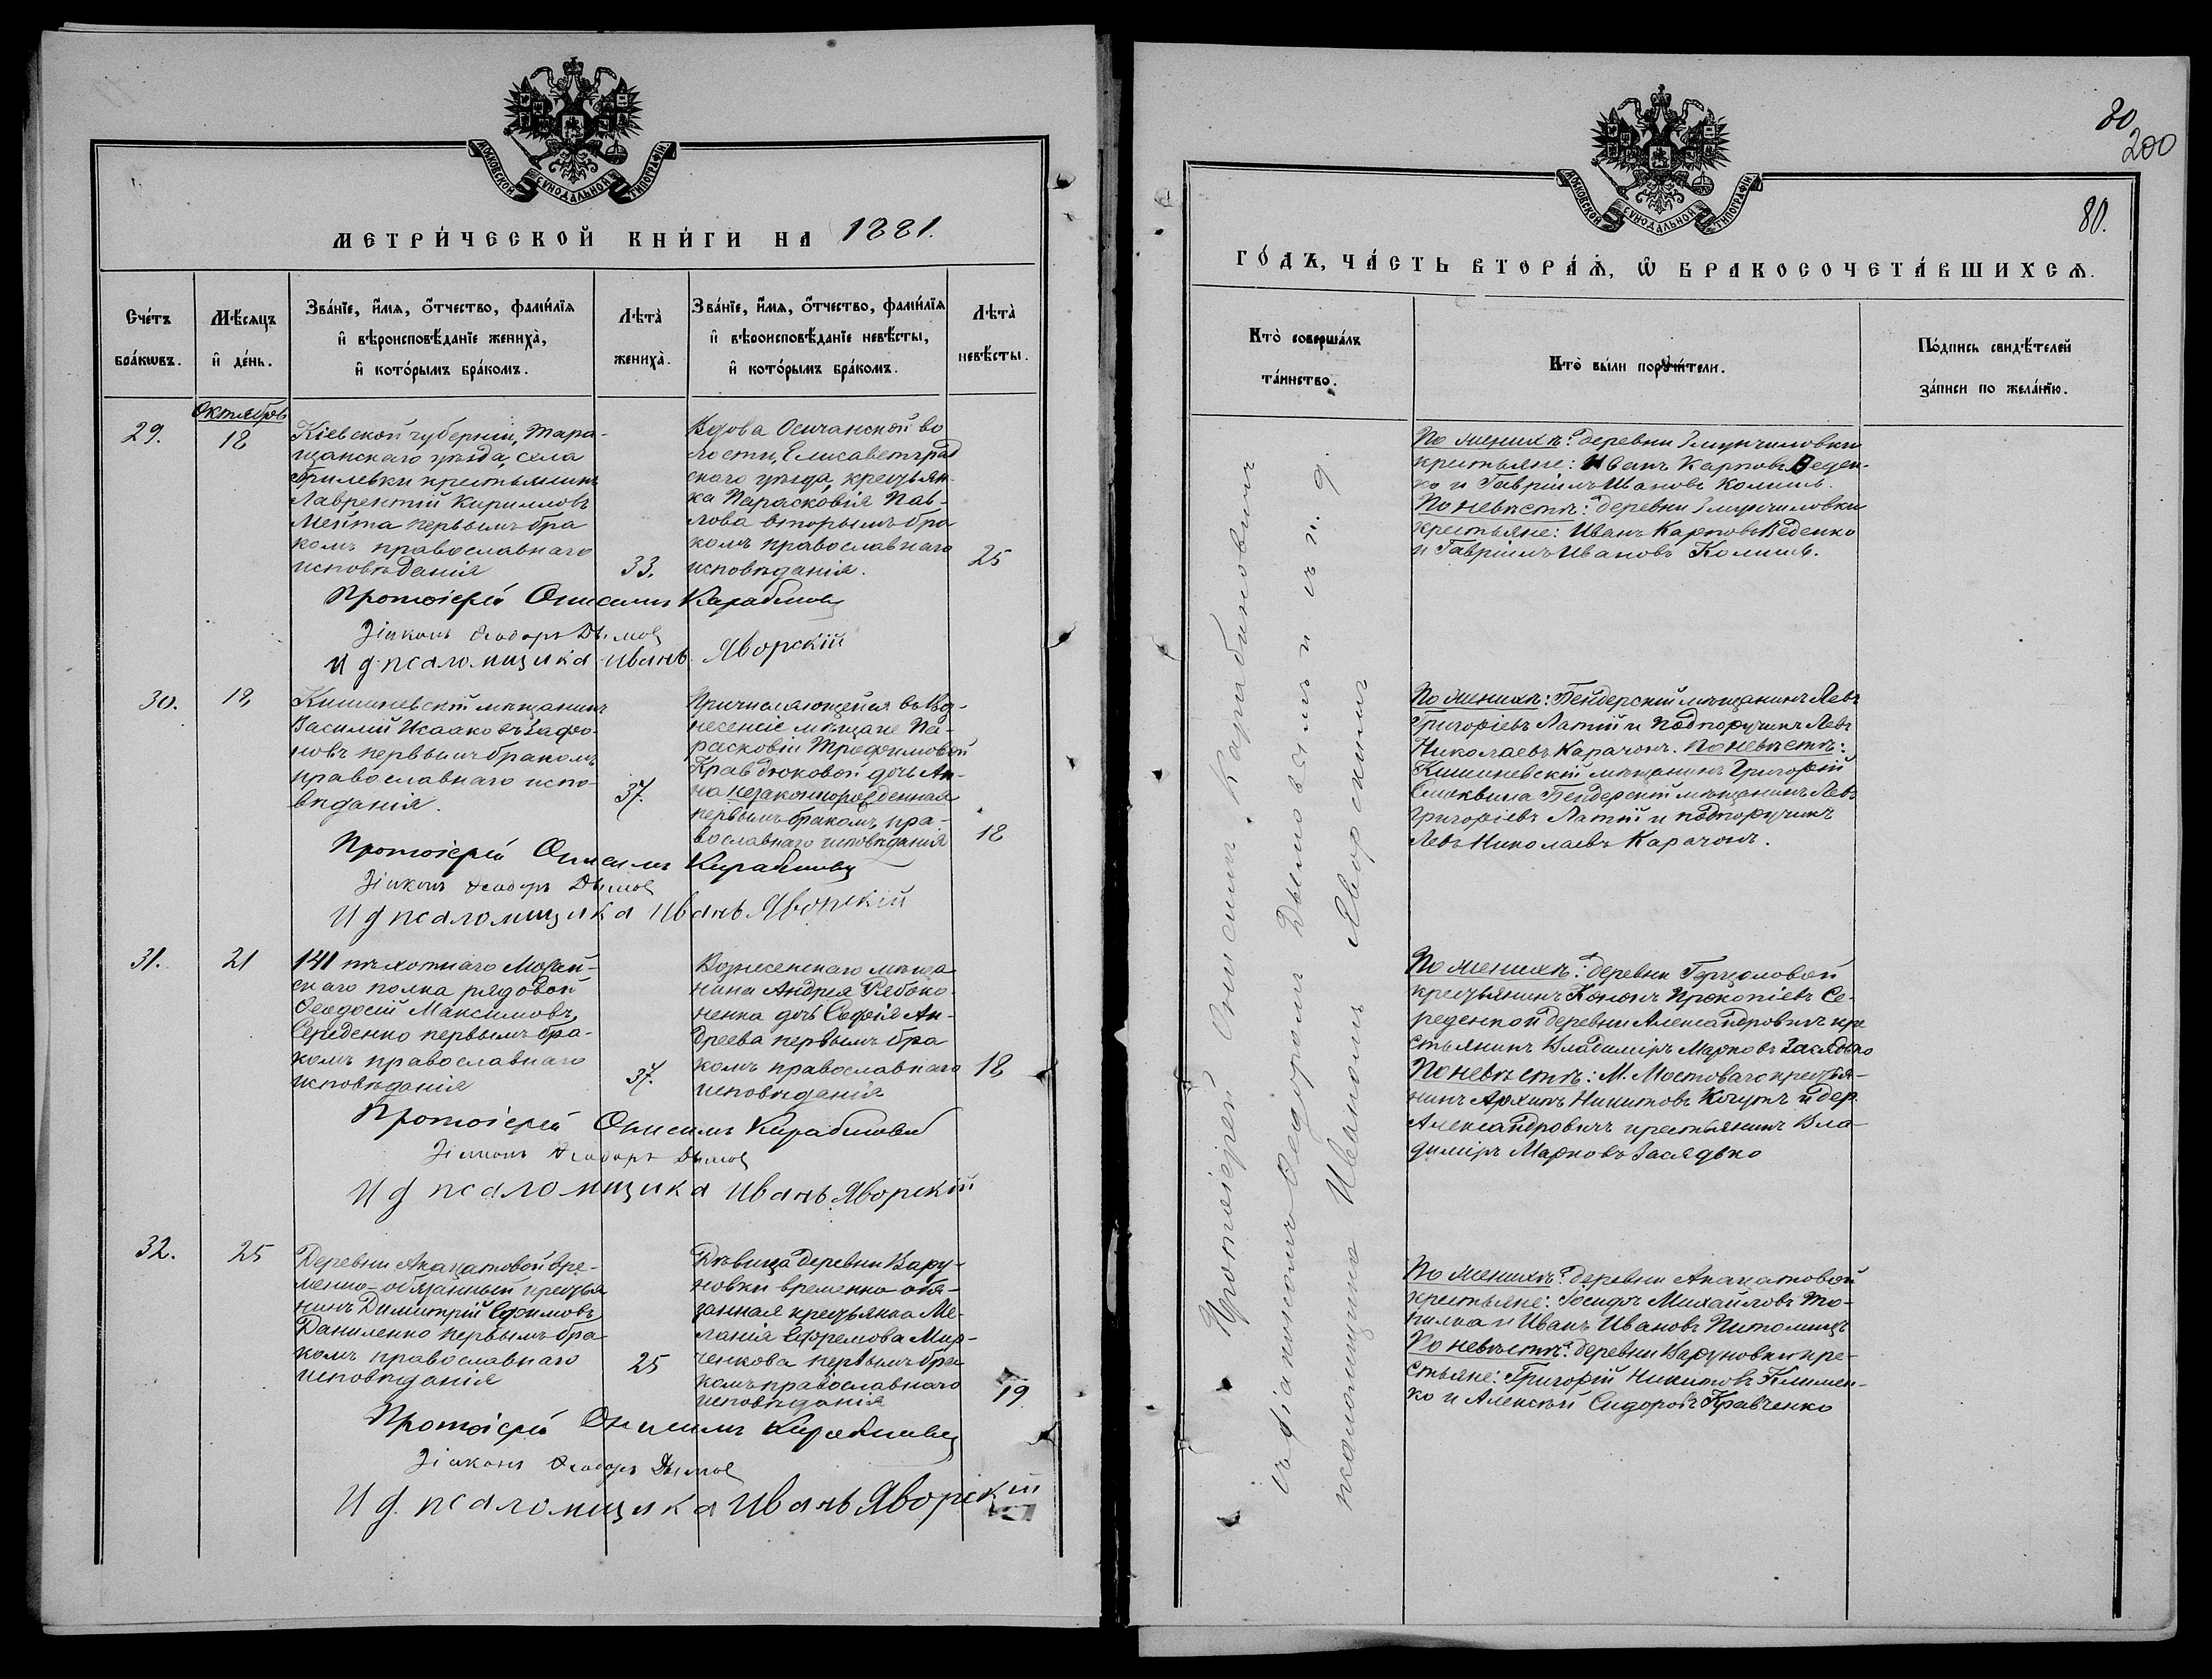 МОСКОВСКОЙ СѴНОДАЛЬНОЙ ТИПОГРАФІИ
МЕТРИ́ЧЕСКОЙ КНИ́ГИ НА 1881.
Сче́тъ бра́кѡвъ.
Мѣ́сяцъ и҆ де́нь.
Зва́нїе, и҆́мя, ѻ҆́тчество, фами́лїя
и҆ вѣроисповѣ́данїе жениха̀,
и҆ кото́рымъ бра́комъ.
Лѣта̀ жениха̀.
Зва́нїе, и҆́мя, ѻ҆́тчество, фами́лїя
и҆ вѣроисповѣ́данїе невѣ́сты,
и҆ кото́рымъ бра́комъ.
Лѣта̀ невѣ́сты.
Октябрь
29.
18
Кіевской губерніи, Тара-
щанскаго уѣзда, села
крестьянинъ
Лаврентій Кирилловъ
первымъ бра
комъ православнаго
исповѣданія
33.
Вдова Осичанской во
лости, Елисаветград
скаго уѣзда, крестьян-
ка Парасковія Пав-
лова вторымъ бра
комъ православнаго
исповѣданія.
25
Протоіерей Онисимъ Карабиновъ
Діаконъ Ѳеодоръ Дымов
И д псаломщика Иванъ Яворскій
30.
19
Кишиневскій мѣщанинъ
Василій Исааковъ Зафо-
новъ первымъ бракомъ
православнаго испо-
вѣданія.
37.
Причисляющейся въ Воз-
несенскіе мѣщане Па-
расковіи Трофимовой
Кравдюковой дочь Ан-
на незаконнорожденная
первымъ бракомъ, пра-
вославнаго исповѣданія
18
Протоіерей Онисимъ Карабиновъ
Діаконъ Ѳеодоръ Дымов
И д псаломщика Иванъ Яворскій
31.
21
141 пѣхотнаго Можай-
скаго полка рядовой
Ѳеодосій Максимовъ
Середенко первымъ бра-
комъ православнаго
исповѣданія
37.
Вознесенскаго мѣща
нина Андрея Рябоко-
ненка дочь Софія Ан-
дреева первымъ бра
комъ православнаго
исповѣданія
18
Протоіерей Онисимъ Карабиновъ
Діаконъ Ѳеодоръ Дымов
И д псаломщика Иванъ Яворскій
32.
25
Деревни Акацатовой вре-
менно-обязанный крестья
нинъ Димитрій Ефимовъ
Даниленко первымъ бра
комъ православнаго
исповѣданія
25
Дѣвица деревни Вару-
новки временно-обя-
занная крестьянка Ме-
ланія Ефремова Мир-
ченкова первымъ бра
комъ православнаго
исповѣданія
19
Протоіерей Онисимъ Карабиновъ
Діаконъ Ѳеодоръ Дымов
И д. псаломщика Иванъ Яворскій
80
200
80.
МОСКОВСКОЙ СѴНОДАЛЬНОЙ ТИПОГРАФІИ
ГО́ДЪ, ЧА́СТЬ ВТОРА́Я, Ѡ҆ БРАКОСОЧЕТА́ВШИХСЯ.
Кто̀ соверша́лъ
та́инство.
Кто̀ бы́ли пору́чители.
По́дпись свидѣ́телей
за́писи по жела́нїю.
Протоіерей Онисимъ Карабиновичъ
съ діакономъ Ѳедоромъ Дымовымъ и съ и. д.
псаломщика Иваномъ Яворскимъ
По женихѣ: деревни
крестьяне: Иванъ Карповъ Веден-
ко и Гавріилъ Ивановъ Колишъ.
По невѣстѣ: деревни
крестьяне: Иванъ Карповъ Веденко
и Гавріилъ Ивановъ Колишъ.
По женихѣ: Бендерскій мѣщанинъ Левъ
Григоріевъ Латій и подпоручикъ Левъ
Николаевъ Карачонъ. По невѣстѣ:
Кишиневскій мѣщанинъ Григорій
Смоквина Бендерскій мѣщанинъ Левъ
Григоріевъ Латій и подпоручикъ
Левъ Николаевъ Карачонъ.
По женихѣ: деревни
крестьянинъ Кононъ Прокопіевъ Се-
реденко и деревни Александровки кре
стьянинъ Владиміръ Марковъ Засядько
По невѣстѣ: М. Мостоваго крестья-
нинъ Архипъ Никитовъ Когутъ и дер.
Александровки крестьянинъ Вла-
диміръ Марковъ Засядько
По женихѣ: деревни Акацатовой
крестьяне: Іосифъ Михайловъ То-
пилка и Иванъ Ивановъ Питомецъ
По невѣстѣ: деревни Варуновки кре-
стьяне: Григорій Никитовъ Климен-
ко и Алексѣй Сидоровъ Кравченко